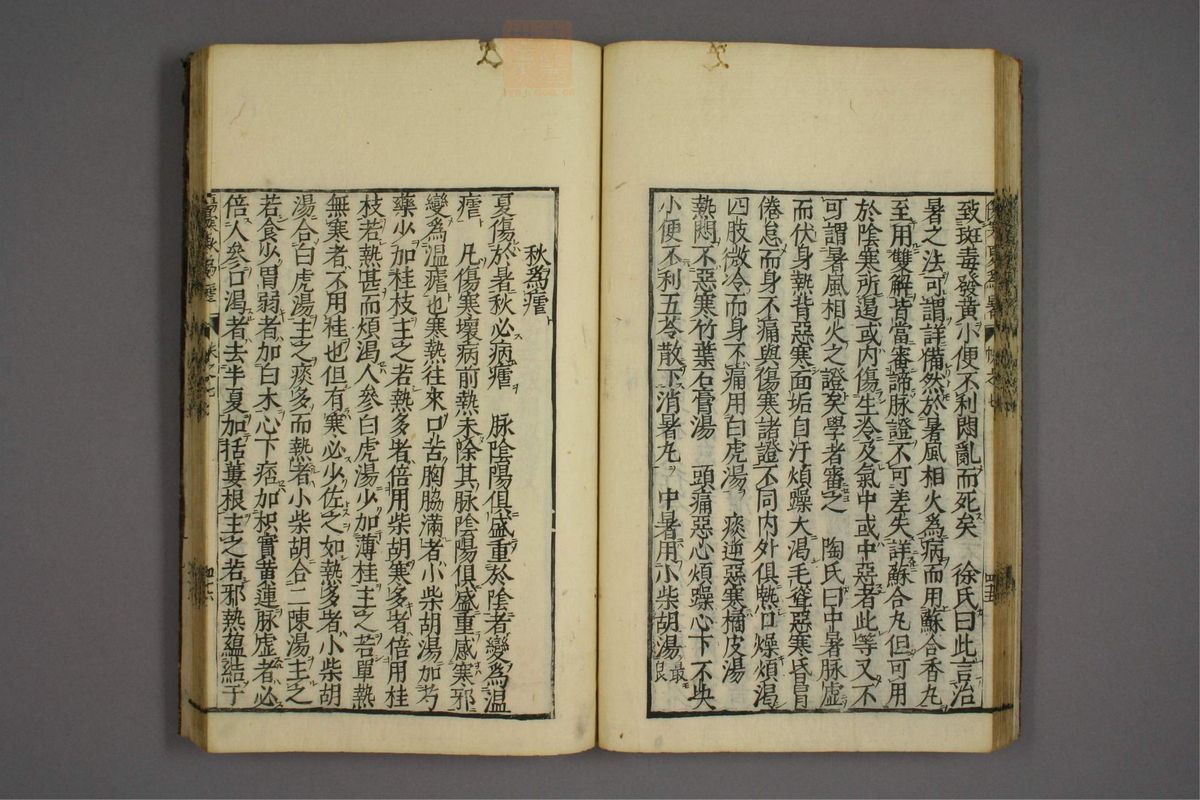 致斑毒發黃小便不利悶亂而死矣　徐氏曰此言治
暑之法可謂詳備然於暑風相火為病而用蘇合香丸
至用雙解皆當審諦脉證不可差失詳蘇合丸但可用
於陰寒所遏或內傷生冷及氣中或中惡者此等又不
可謂暑風相火之證矣學者審之　陶氏曰中暑脉虛
而伏身熱背惡寒面垢自汗煩躁大渴毛聳惡寒昏冒
倦怠而身不痛與傷寒諸證不同內外俱熱口燥煩渴
四肢微冷而身不痛用白虎湯　痰逆惡寒橘皮湯
熱悶不惡寒竹葉石膏湯　頭痛惡心煩躁心下不快
小便不利五苓散下消暑丸　中暑用小柴胡湯最良
秋為瘧
夏傷於暑秋必病瘧　脉陰陽俱盛重於陰者變為温
瘧　凡傷寒壞病前熱未除其脉陰陽俱盛重感寒邪
變為温瘧也寒熱往來口苦胸脇滿者小柴胡湯加芍
藥少加桂枝主之若熱多者倍用柴胡寒多者倍用桂
枝若熱甚而煩渴人參白虎湯少加薄桂主之若單熱
無寒者不用桂也但有寒必少佐之如熱多者小柴胡
湯合白虎湯主之痰多而熱者小柴胡合二陳湯主之
若食少胃弱者加白术心下痞加枳實黃連脉虛者必
倍人參口渴者去半夏加括蔞根主之若邪熱蘊結于